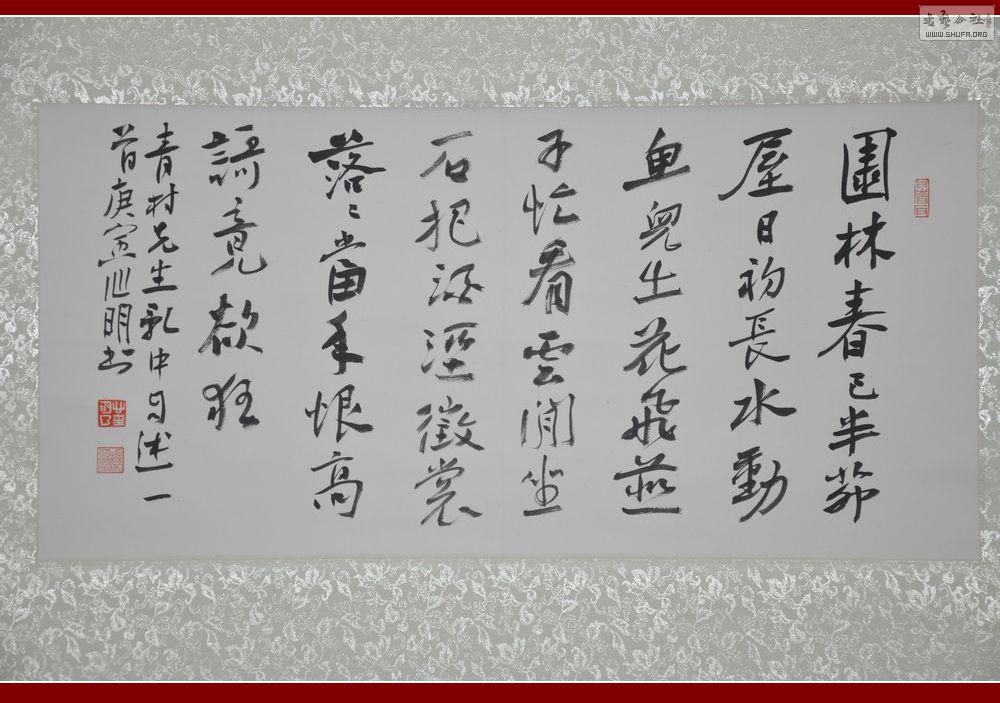 園林春已半茆
屋日初長水動
魚兒出花飛燕
子忙看雲閒坐
石把酒溼徵裳
落〻當年恨高
謌竟欲狂
青村先生乱中自述一
首庚寅心明书
书艺公社
WWW.SHUFA.ORG